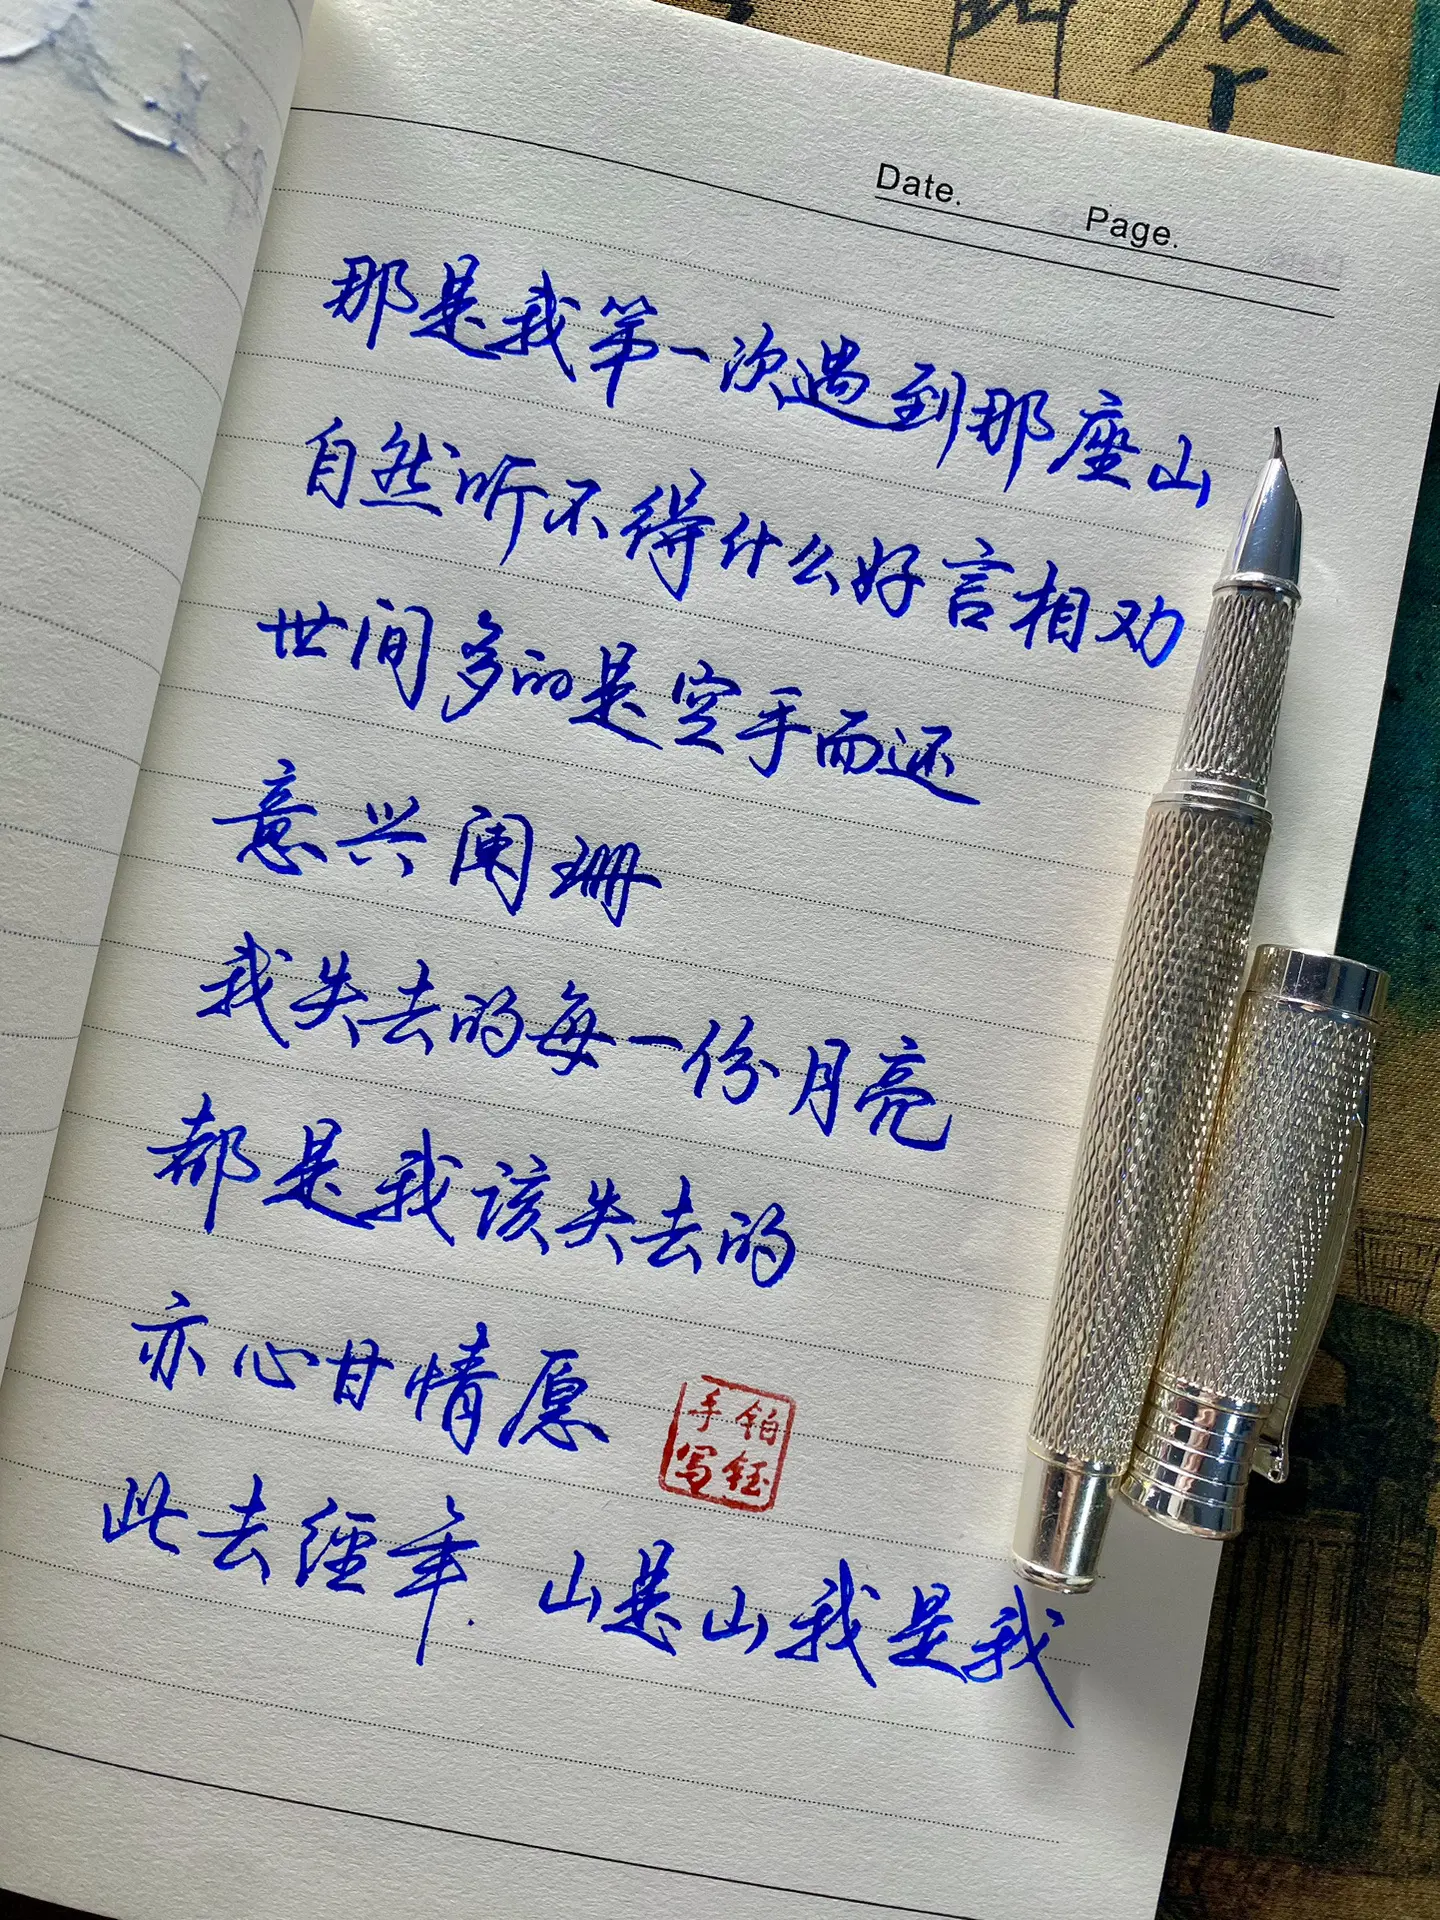 Date.
Page.
那是我第一次遇到那座山
自然听不得什么好言相劝
世间多的是空手而还
意兴阑珊
我失去的每一份月亮
都是我该失去的
亦心甘情愿
铂钰
手写
此去经年. 山是山我是我